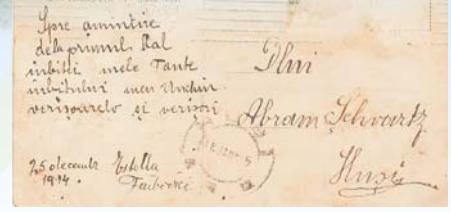 Spre amintire
dela primul Bal
iubitei mele Tante
iubitului meu Unchiu
verișoarelor și verișori
25 decembr Estella
1914.
Dlui
Abram Schwartz
Huși